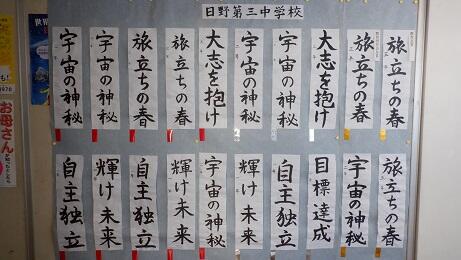 日野第三中学校
旅立ちの春
旅立ちの春
大志を抱け
宇宙の神秘
宇宙の神秘
大志を抱け
旅立ちの春
旅立ちの春
宇宙の神秘
宇宙の神秘
旅立ちの春
宇宙の神秘
目標達成
自主独立
輝け未来
宇宙の神秘
輝け未来
自主独立
輝け未来
自主独立
お母さん